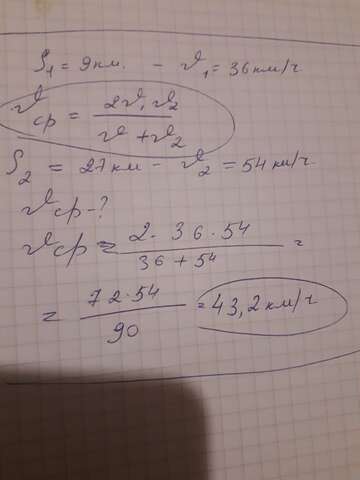 S₁ = 9 км. - υ₁ = 36 км/ч
υср = 2υ₁υ₂ / υ + υ₂
S₂ = 27 км - υ₂ = 54 км/ч.
υср - ?
υср = 2 · 36 · 54 / 36 + 54 =
= 72 · 54 / 90 = 43,2 км/ч